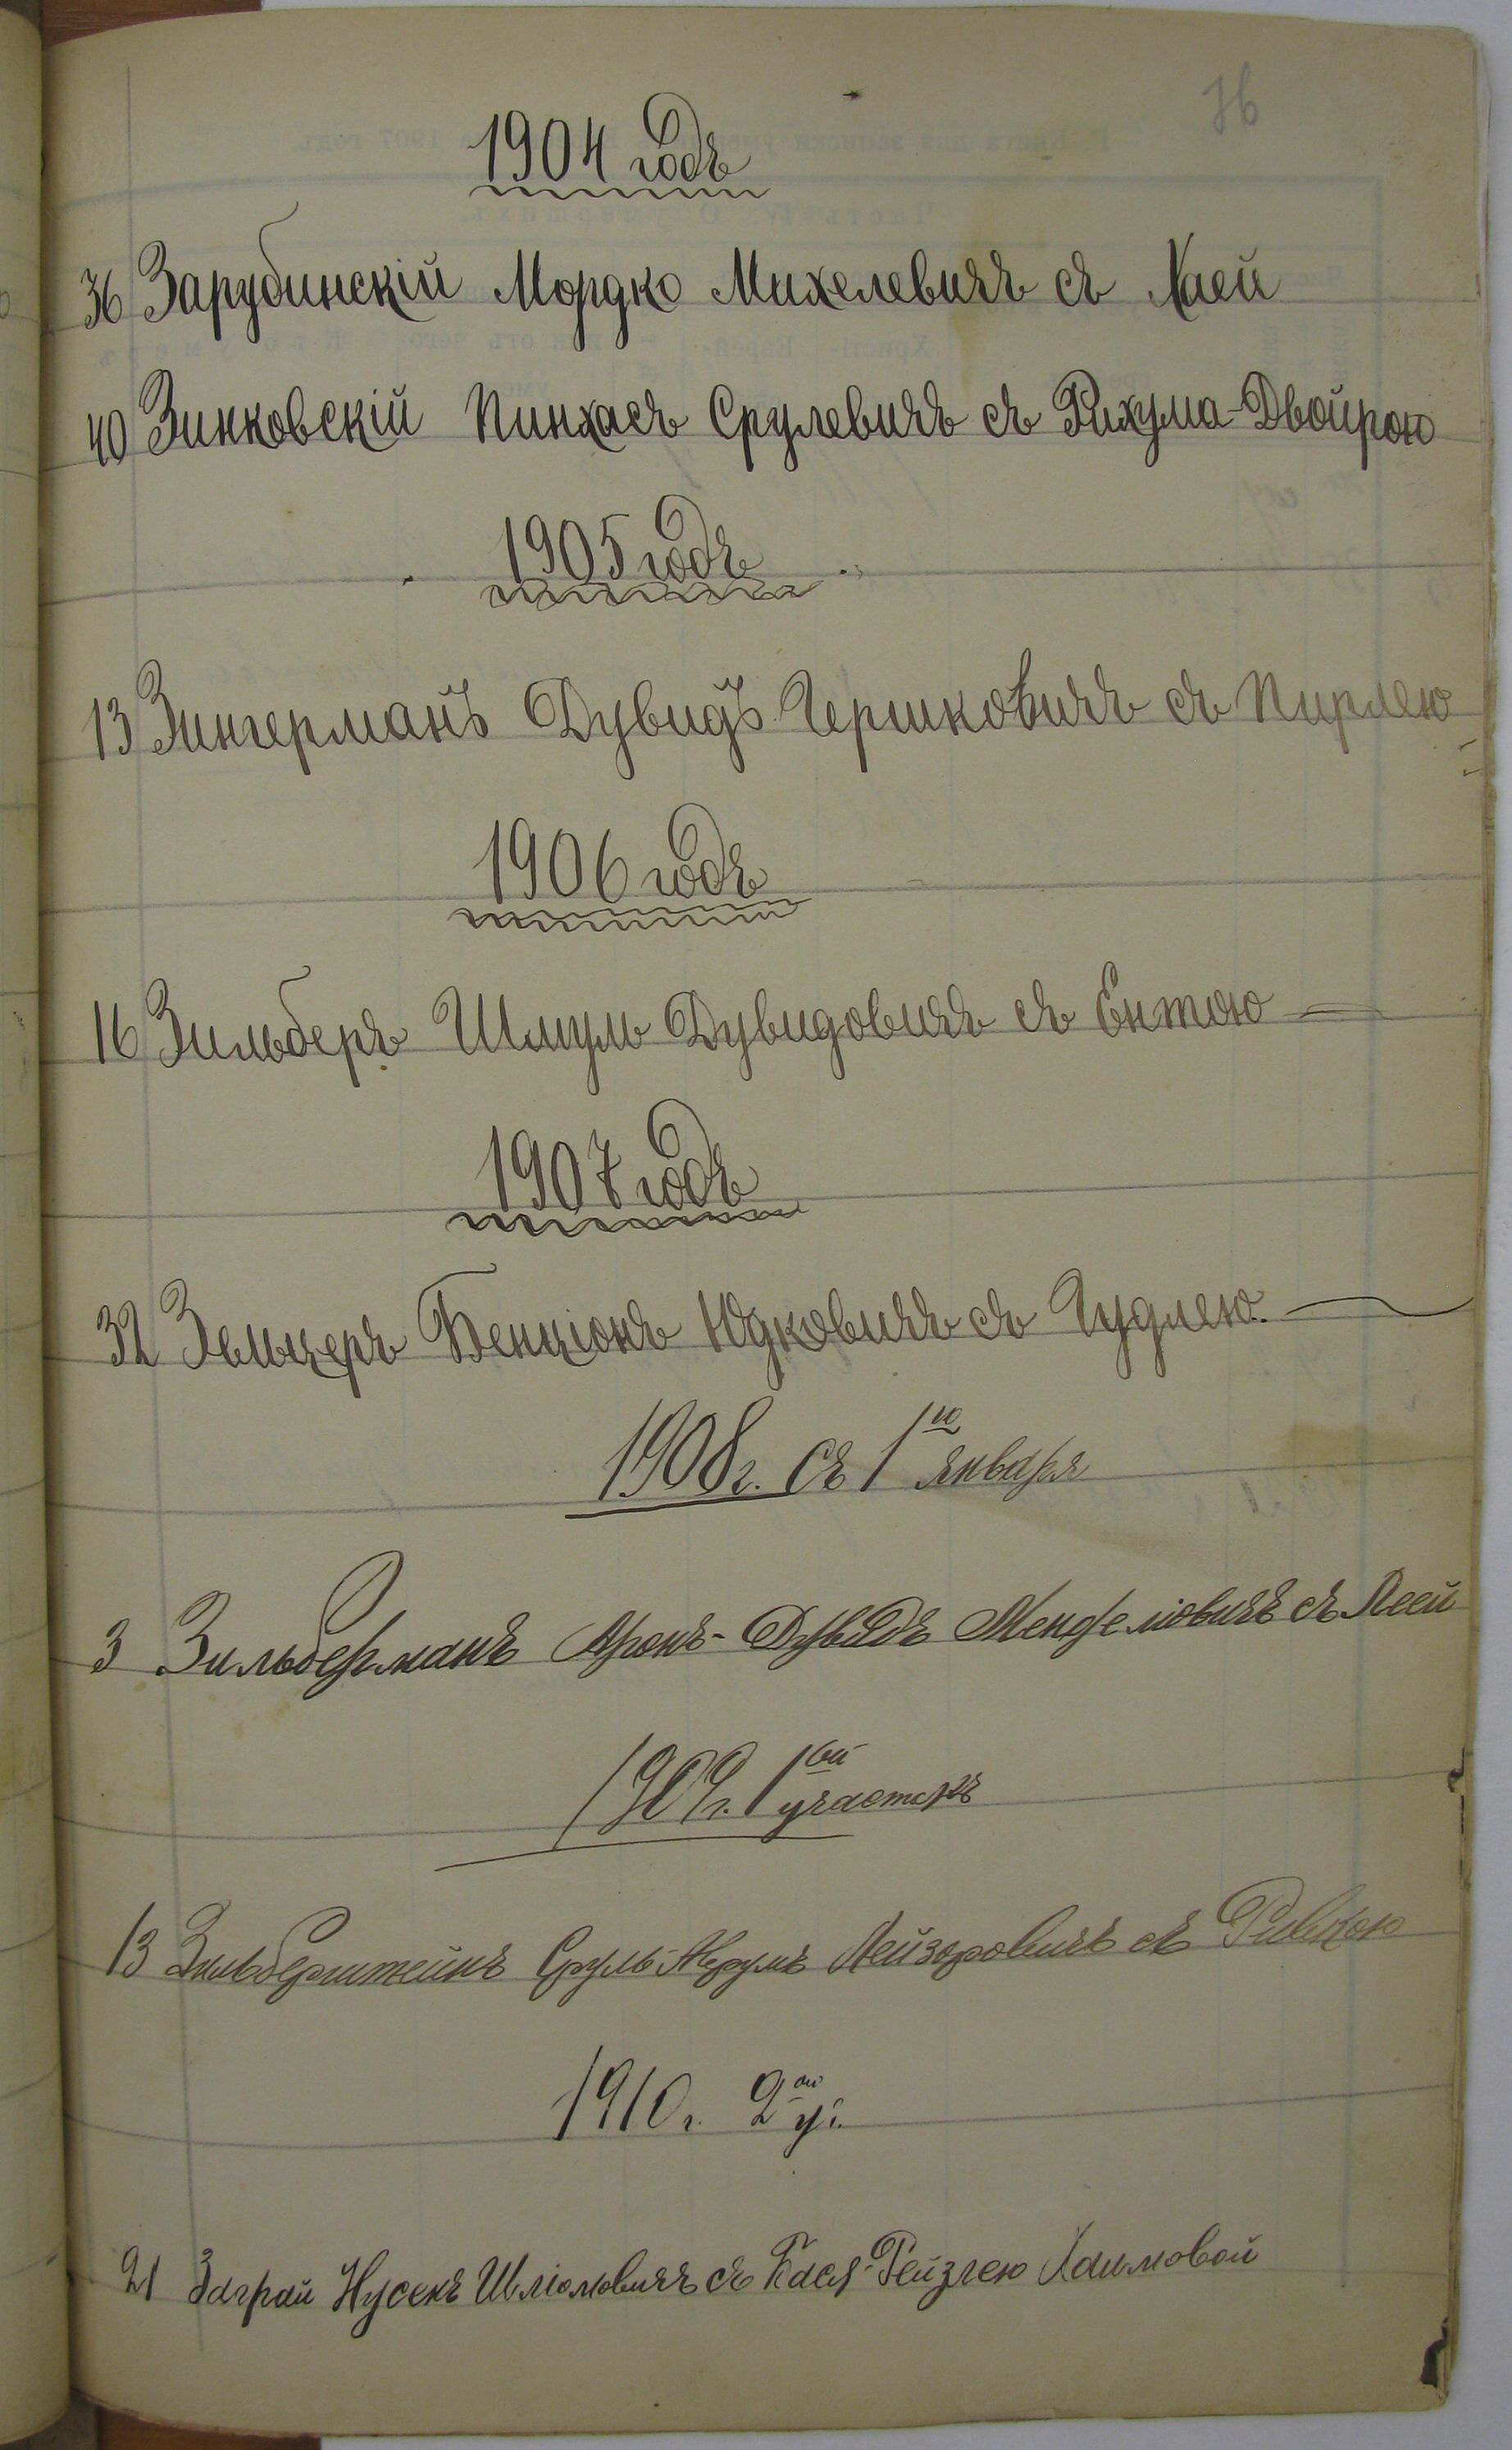 36
1904 годъ
36 Зарубинскій Мордко Михелевичъ съ Хаей
40 Зинковскій Пинхасъ Срулевичъ съ Рихума-Двойрою
1905 годъ
13 Зингерманъ Дувидъ Гершковичъ съ Пирлею
1906 годъ
16 Зильберъ Шмуль Дувидовичъ съ Ентою
1907 годъ
32 Зельцеръ Бенціонъ Юдковичъ съ Гудлею.
1908г. съ 1го января
3 Зильберманъ Аронъ-Дувидъ Менделіовичъ съ Леей
1909г. 1ый участокъ
13 Зильберштейнъ Сруль-Аврумъ Лейзоровичъ съ Ривкою
1910г. 2ой у.
21 Заграй Нусенъ Шліомовичъ съ Бася-Рейзлею Хаимовой